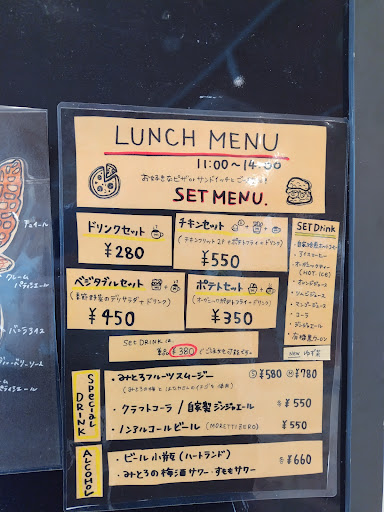 LUNCH MENU
11:00〜14:00
お好きなピザorサンドイッチとご一緒に!
SET MENU.
ドリンクセット
¥280
チキンセット
(チキンフリット2P+ポテトフライ+ドリンク)
¥550
ベジタブルセット
(季節野菜のデリサラダ+ドリンク)
¥450
ポテトセット
(オーガニックポテトフライ+ドリンク)
¥350
SET Drink
・アイスコーヒー
・オーガニックティー
(HOT, ICE)
・オレンジジュース
・りんごジュース
・マンゴージュース
・コーラ
・ジンジャエール
NEW ゆず茶
Set DRINK は
単品 ¥380 でご注文可能です。
Special DRINK
・みとろフルーツスムージー Ⓢ¥580 Ⓜ¥780
・クラフトコーラ / 自家製ジンジャエール 各¥550
・ノンアルコールビール (MORETTI ZERO) ¥550
ALCOHOL
・ビール小瓶 (ハートランド) 各¥660
・みとろの梅酒サワー・すももサワー
チュイール
クレーム
パティシエール
バニラアイス